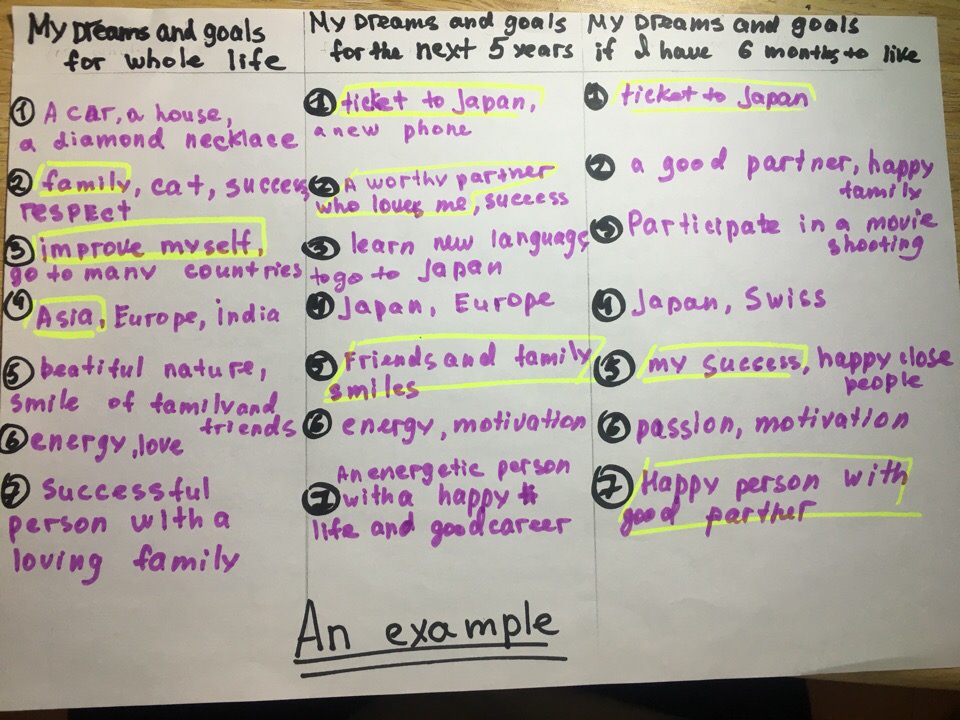 My Dreams and goals
for whole life
① A car, a house,
a diamond necklace
② family, cat, success,
respect
③ improve myself,
go to many countries
④ Asia, Europe, india
⑤ beatiful nature,
smile of family and
friends
⑥ energy, love
⑦ Successful
person with a
loving family
My Dreams and goals
for the next 5 years
① ticket to Japan,
a new phone
② A worthy partner
who loves me, success
③ learn new language
to go to Japan
④ Japan, Europe
⑤ Friends and family
smiles
⑥ energy, motivation
An energetic person
⑦ with a happy
life and good career
My Dreams and goals
if I have 6 months to like
① ticket to Japan
② a good partner, happy
family
③ Participate in a movie
shooting
④ Japan, Swiss
⑤ my success, happy close
people
⑥ passion, motivation
⑦ Happy person with
good partner
An example